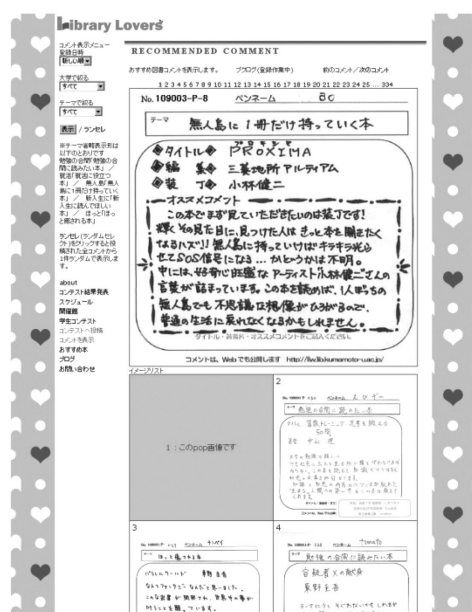 Library Lovers
コメント表示メニュー
登録日時
新しい順
大学で絞る
すべて
テーマで絞る
すべて
表示 / ランセレ
※テーマ省略表示形は
以下のとおりです
勉強の合間「勉強の合
間に読みたい本」 /
就活「就活に役立つ
本」 / 無人島「無人
島に1冊だけ持ってい
く本」 / 新入生に「新
入生に読んでほしい
本」 / ほっと「ほっ
と癒される本」
ランセレ(ランダムセレ
クト)をクリックすると投
稿された全コメントから
1件ランダムで表示しま
す。
about
コンテスト結果発表
スケジュール
開催館
学生コンテスト
コンテストへ投稿
コメントを表示
おすすめ本
ブログ
お問い合わせ
RECOMMENDED COMMENT
おすすめ図書コメントを表示します。 ブクログ(登録作業中) 前のコメント/次のコメント
1 2 3 4 5 6 7 8 9 10 11 12 13 14 15 16 17 18 19 20 21 22 23 24 25 ... 334
No. 109003-P-8 ペンネーム ao
テーマ 無人島に1冊だけ持っていく本
プロキシマ
◆タイトル◆ PROXIMA
◆編 集◆ 三菱地所アルティアム
◆装 丁◆ 小林健二
オススメコメント
この本でまず見ていただきたいのは装丁です!
輝くその見た目に、見つけた人はきっと本を開きたく
なるハズ!! 無人島に持っていけばキラキラ光ら
せてSOS信号になる…かどうかは不明。
中には、好奇に旺盛なアーティスト小林健二さんの
言葉が詰まっています。この本を読めば、1人ぼっちの
無人島でも不思議な想像がひろがるので、
普通の生活に戻れなくなるかもしれません。
タイトル・著者名・オススメコメントをご記入ください。
コメントは、Webでも公開します http://llw.lib.kumamoto-u.ac.jp/
イメージリスト
1:このpop画像です
2
ペンネーム えびぞー
テーマ 勉強の合間に読みたい本
3
ペンネーム
テーマ ほっと癒される本
4
ペンネーム tomato
テーマ 勉強の合間に読みたい本
容疑者Xの献身
東野圭吾